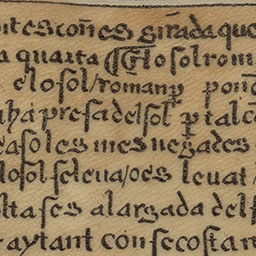 itescoñes girada que
a quarta ⸿ Elo sol rom
elo sol / roman p̱ pon
aha presa del sol p̱ tal c
casoles mesuegades
lo sol seleua / oes leuat
lta ses alargada del
raytant con secosta